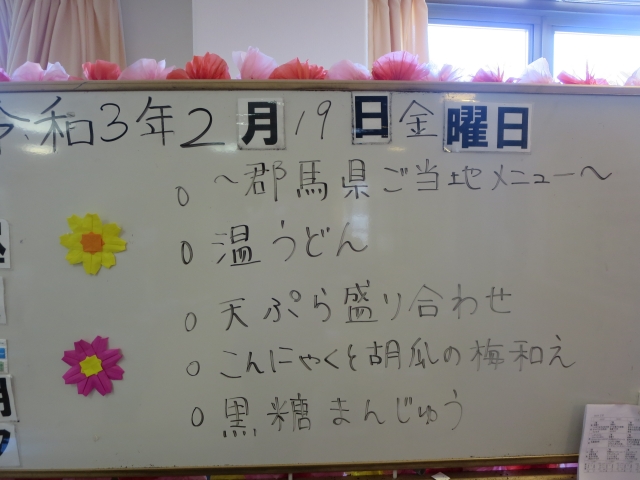 令和3年2月19日金曜日
〜郡馬県ご当地メニュー〜
温うどん
天ぷら盛り合わせ
こんにゃくと胡瓜の梅和え
黒糖まんじゅう
月